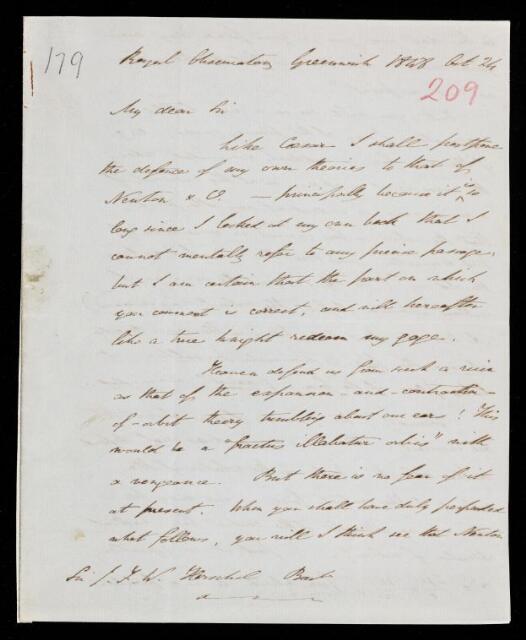 179
Royal Observatory Greenwich 1848 Oct 24
209
My dear Sir
Like Cæsar I shall postpone
the defence of my own theories to that of
Newton & C. — principally because it is so
long since I looked at my own book that I
cannot mentally refer to any precise passage,
but I am certain that the part on which
you comment is correct, and will hereafter
like a true knight redeem my gage.
Heaven defend us from such a ruin
as that of the expansion-and-contraction-
of-orbit theory tumbling about our ears! This
would be a "fractus illabatur orbis" with
a vengeance. But there is no fear of it
at present. When you shall have duly perpended
what follows, you will I think see that Newton
Sir J. F. W. Herschel Bart